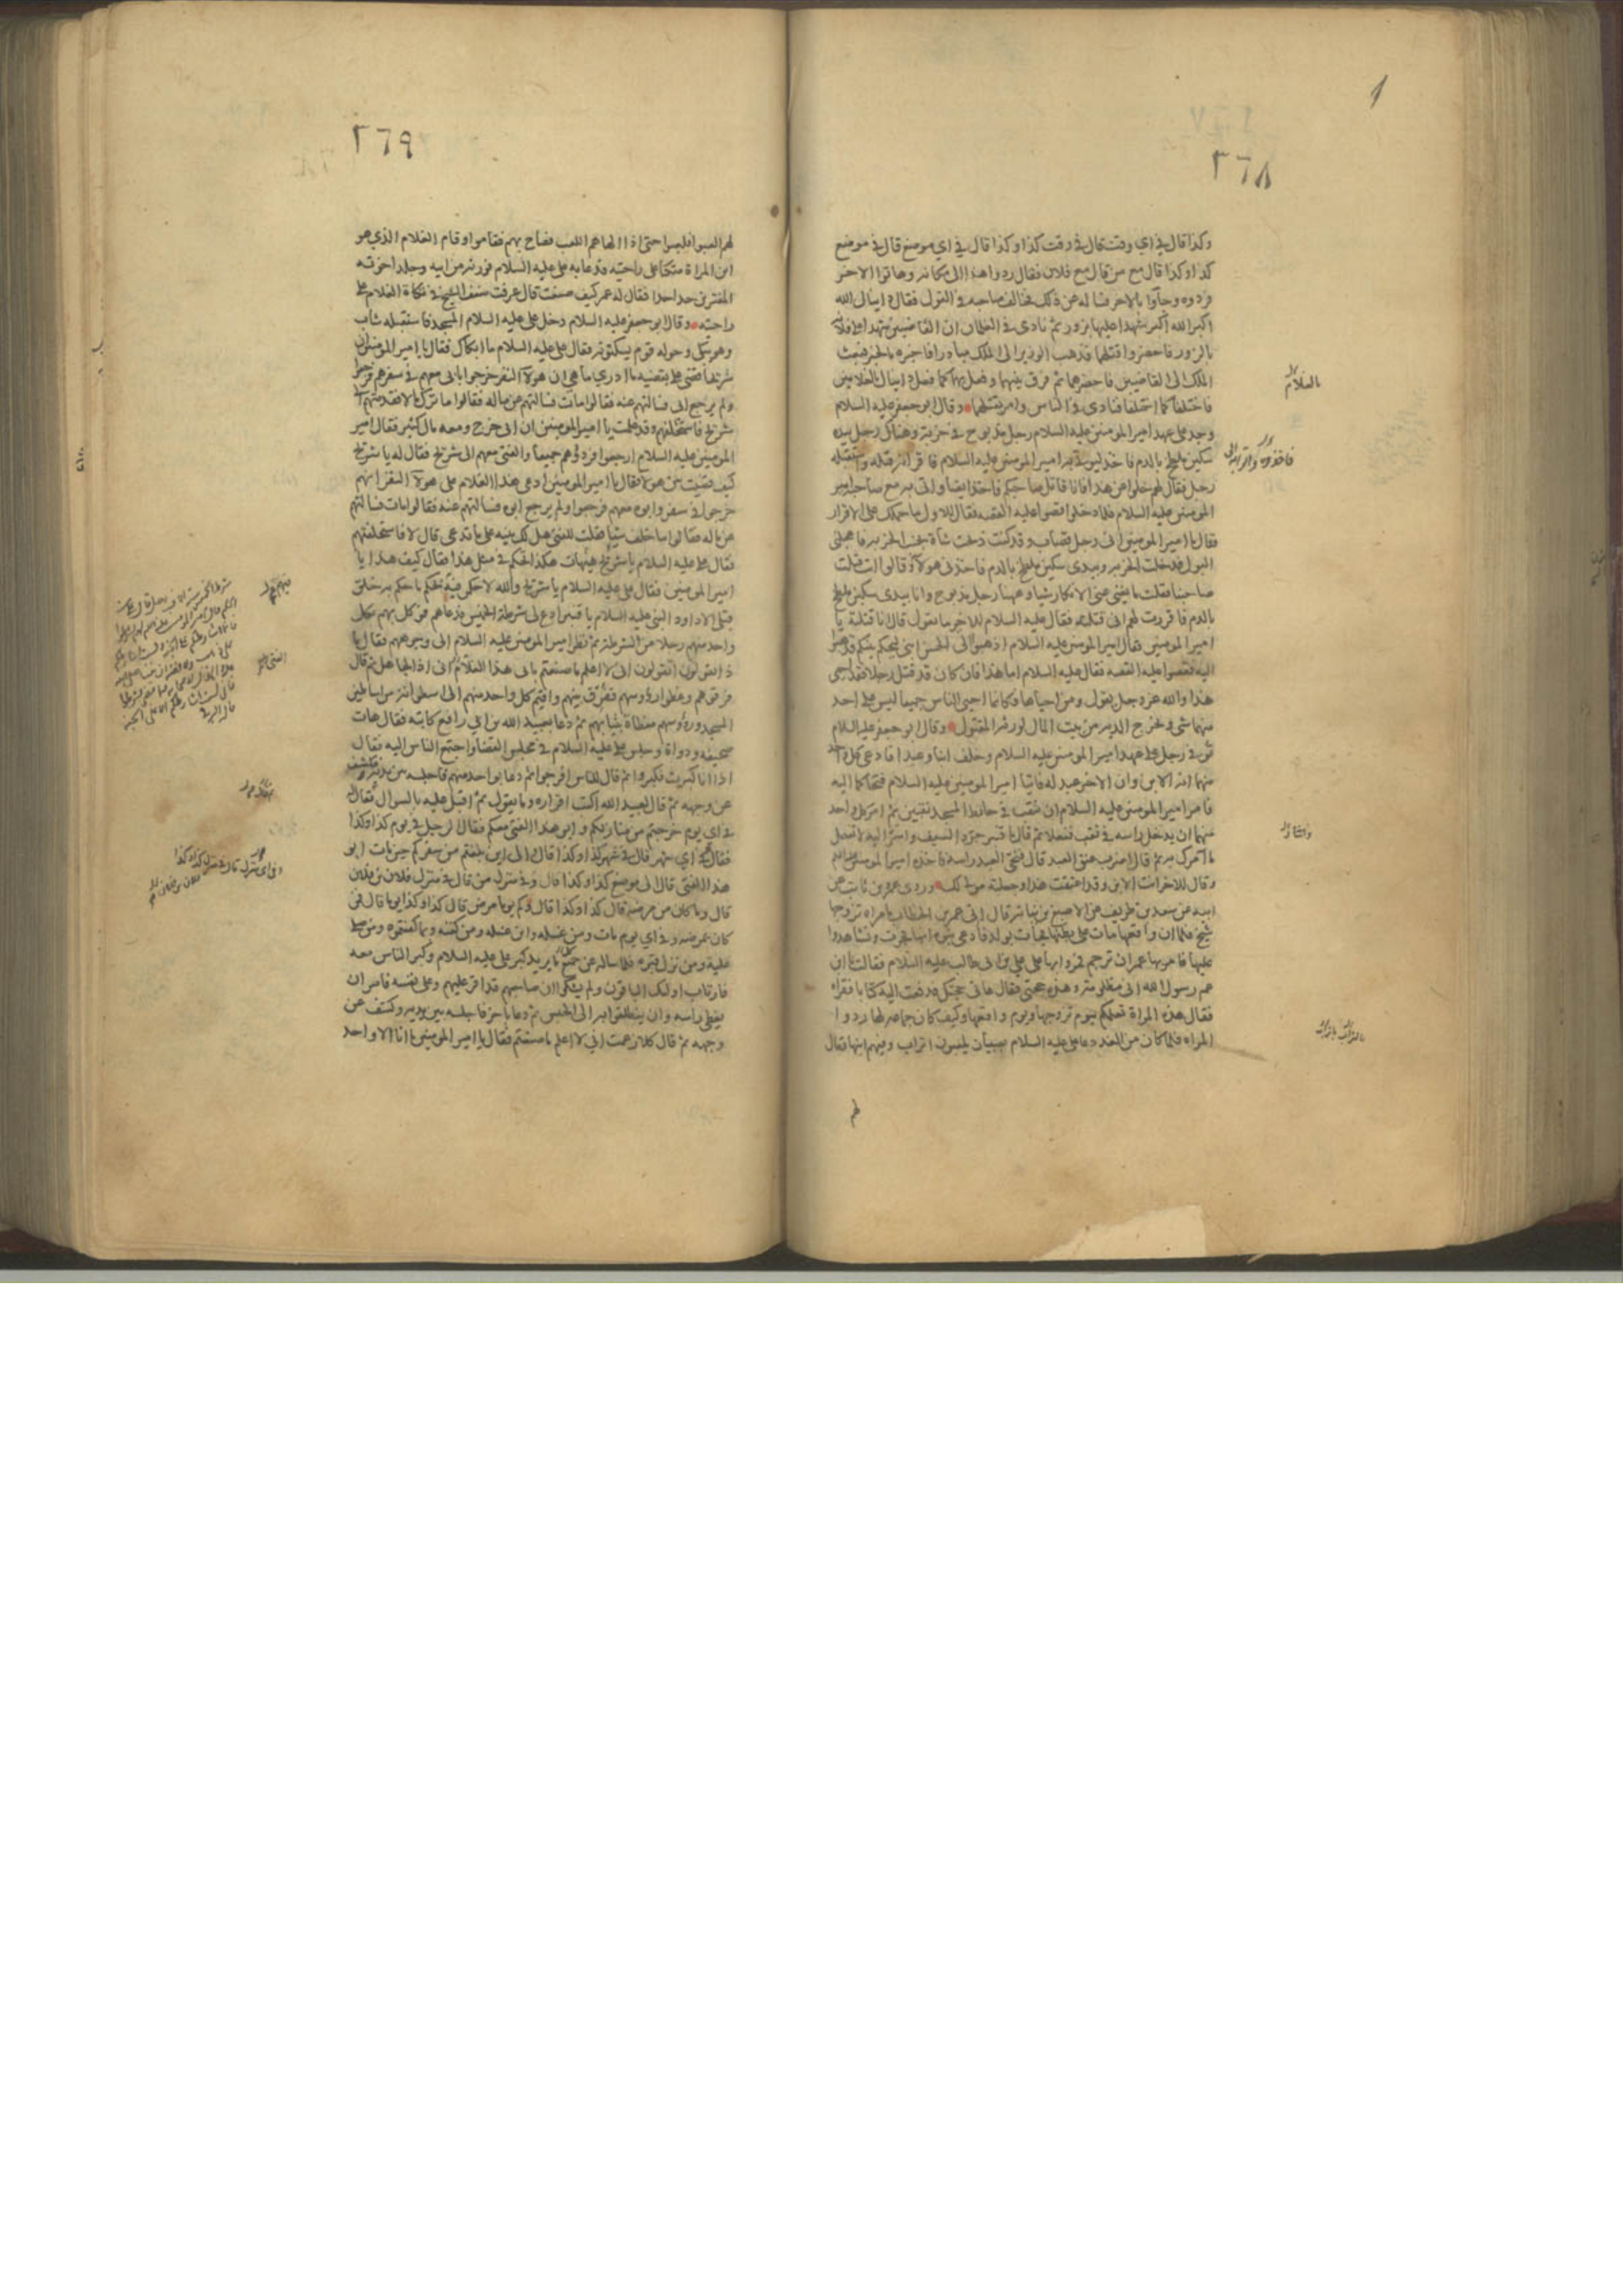 ٢٦٨
وكذا قال في اي وقت قال في وقت كذا وكذا قال في اي موضع قال في موضع
كذا وكذا قال مع من قال مع فلان فقال ردوا هذا الى مكانه وهاتوا الاخر
فردوه وجاؤا بالاخر فساله عن ذلك فخالف صاحبه في القول فقال دانيال الله
اكبر الله اكبر شهدا عليها بزور ثم نادى في الغلمان ان القاضيين شهدا على فلانة
بالزور فاحضروا قتلهما فذهب الوزير الى الملك مبادرا فاخبره بالخبر فبعث
الملك الى القاضيين فاحضرهما ثم فرق بينهما وفعل بهما كما فعل دانيال بالغلامين
فاختلفا كما اختلفا فنادى في الناس وامر بقتلهما وقال ابو جعفر عليه السلام
وجد على عهد امير المومنين عليه السلام رجل مذبوح في خربة وهناك رجل بيده
سكين ملطخ بالدم فاخذ ليوتى به امير المومنين عليه السلام فاقر انه قتله واستقبله
رجل فقال لهم خلوا عن هذا فانا قاتل صاحبكم فاخذ ايضا واتى به مع صاحبه امير
المومنين عليه السلام فلما دخلوا قصوا عليه القصة فقال للاول ما حملك على الاقرار
فقال يا امير المومنين اني رجل قصاب وقد كنت ذبحت شاة بجنب الخربة فاعجلني
البول فدخلت الخربة وبيدي سكين ملطخ بالدم فاخذني هولاء وقالوا انت قتلت
صاحبنا فقلت ما يغني عني الانكار شيا وههنا رجل مذبوح وانا بيدي سكين ملطخ
بالدم فاقررت لهم اني قتلته فقال عليه السلام للاخر ما تقول قال انا قتلته يا
امير المومنين فقال امير المومنين عليه السلام اذهبوا الى الحسن ابني ليحكم بينكم فذهبوا
اليه فقصوا عليه القصة فقال عليه السلام اما هذا فان كان قد قتل رجلا فقد احيى
هذا والله عز وجل يقول ومن احياها فكانما احيى الناس جميعا ليس على احد
منهما شي وتخرج الدية من بيت المال لورثة المقتول وقال ابو جعفر عليه السلام
توفي رجل على عهد امير المومنين عليه السلام وخلف ابنا وعبدا فادعى كل واحد
منهما انه الابن وان الاخر عبد له فاتيا امير المومنين عليه السلام فتحاكما اليه
فامر امير المومنين عليه السلام ان يثقب في حائط المسجد ثقبين ثم امر كل واحد
منهما ان يدخل راسه في ثقب ففعلا ثم قال يا قنبر جرد السيف واسر اليه لا تفعل
ما آمرك به ثم قال اضرب عنق العبد قال فنحى العبد راسه فاخذه امير المومنين عليه السلام
وقال للاخر انت الابن وقد اعتقت هذا وجعلته مولى لك وروى عمرو بن ثابت عن
ابيه عن سعد بن طريف عن الاصبغ بن نباتة قال اتى عمر بن الخطاب بامراة تزوجها
شيخ فلما ان واقعها مات على بطنها فجات بولد فادعى بنوه انها فجرت وتشاهدوا
عليها فامر بها عمر ان ترجم فمروا بها على علي بن ابي طالب عليه السلام فقالت يا ابن
عم رسول الله اني مظلومة وهذه حجتي فقال هاتي حجتك فدفعت اليه كتابا فقراه
فقال هذه المراة تعلمكم بيوم تزوجها ويوم واقعها وكيف كان جماعه لها ردوا
المراة فلما كان من الغد دعا علي عليه السلام بصبيان يلعبون اتراب وفيهم ابنها فقال
٢٦٩
لهم العبوا فلعبوا حتى اذا الهاهم اللعب فصاح بهم فقاموا وقام الغلام الذي هو
ابن المراة متكئا على راحتيه فدعا به علي عليه السلام فورثه من ابيه وجلد اخوته
المفترين حدا حدا فقال له عمر كيف صنعت قال عرفت ضعف الشيخ في تكاة الغلام على
راحتيه وقال ابو جعفر عليه السلام دخل علي عليه السلام المسجد فاستقبله شاب
وهو يبكي وحوله قوم يسكتونه فقال علي عليه السلام ما ابكاك فقال يا امير المومنين ان
شريحا قضى علي بقضية ما ادري ما هي ان هولاء النفر خرجوا بابي معهم في سفرهم فرجعوا
ولم يرجع ابي فسالتهم عنه فقالوا مات فسالتهم عن ماله فقالوا ما ترك مالا فقدمتهم الى
شريح فاستحلفهم وقد علمت يا امير المومنين ان ابي خرج ومعه مال كثير فقال امير
المومنين عليه السلام ارجعوا فردوهم جميعا والفتى معهم الى شريح فقال له يا شريح
كيف قضيت بين هولاء فقال يا امير المومنين ادعى هذا الغلام على هولاء النفر انهم
خرجوا في سفر وابوه معهم فرجعوا ولم يرجع ابوه فسالتهم عنه فقالوا مات فسالتهم
عن ماله فقالوا ما خلف شيا فقلت للفتى هل لك بينة على ما تدعي قال لا فاستحلفتهم
فقال علي عليه السلام يا شريح هيهات هكذا تحكم في مثل هذا فقال كيف هذا يا
امير المومنين فقال علي عليه السلام يا شريح والله لاحكمن فيه بحكم ما حكم به خلق
قبلي الا داود النبي عليه السلام يا قنبر ادع لي شرطة الخميس فدعاهم فوكل بهم بكل
واحد منهم رجلا من الشرطة ثم نظر امير المومنين عليه السلام الى وجوههم فقال ما
ذا تقولون اتقولون اني لا اعلم ما صنعتم بابي هذا الغلام اني اذا لجاهل ثم قال
فرقوهم وغطوا روسهم ففرق بينهم واقيم كل واحد منهم الى اسطوانة من اساطين
المسجد وروسهم مغطاة بثيابهم ثم دعا بعبيد الله بن ابي رافع كاتبه فقال هات
صحيفة ودواة وجلس علي عليه السلام في مجلس القضا واجتمع الناس اليه فقال
اذا انا كبرت فكبروا ثم قال للناس افرجوا ثم دعا بواحد منهم فاجلسه بين يديه وكشف
عن وجهه ثم قال لعبيد الله اكتب اقراره وما يقول ثم اقبل عليه بالسوال فقال
في اي يوم خرجتم من منازلكم وابو هذا الفتى معكم فقال الرجل في يوم كذا وكذا
فقال في اي شهر قال في شهر كذا وكذا قال والى اين بلغتم من سفركم حين مات ابو
هذا الفتى قال الى موضع كذا وكذا قال وفي منزل من قال في منزل فلان بن فلان
قال وما كان من مرضه قال كذا وكذا قال وكم يوما مرض قال كذا وكذا يوما قال فمن
كان يمرضه وفي اي يوم مات ومن غسله واين غسله ومن كفنه وبما كفنتموه ومن صلى
عليه ومن نزل قبره فلما ساله عن جميع ما يريد كبر علي عليه السلام وكبر الناس معه
فارتاب اولئك الباقون ولم يشكوا ان صاحبهم قد اقر عليهم وعلى نفسه فامر ان
يغطى راسه وان ينطلقوا به الى الحبس ثم دعا باخر فاجلسه بين يديه وكشف عن
وجهه ثم قال كلا زعمت اني لا اعلم ما صنعتم فقال يا امير المومنين ما انا الا واحد